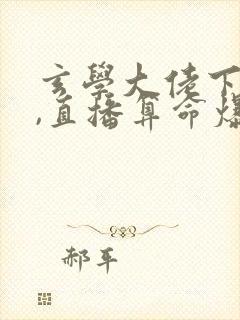 玄學大佬下
,直播算命爆
郝平